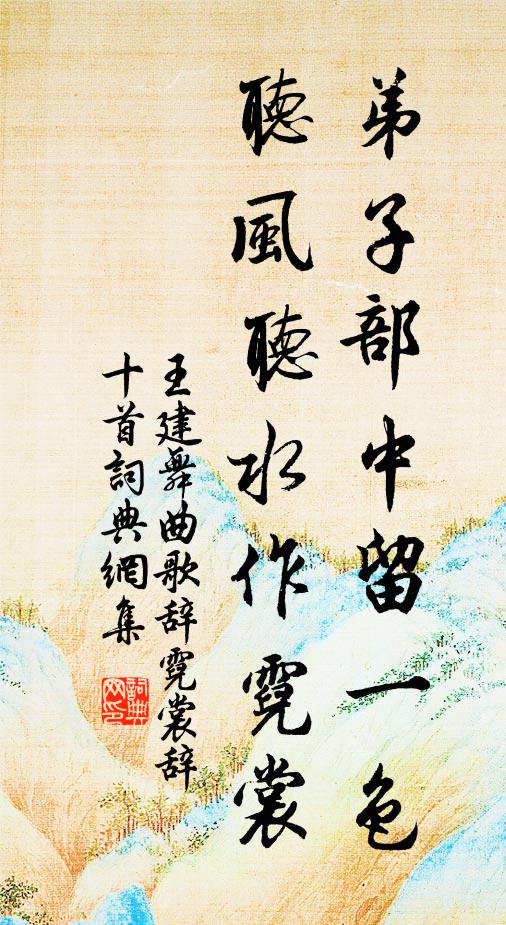 弟子部中留一色
聽風聽水作霓裳
王建舞曲歌辞霓裳辞
十首詞典網集
詞典网印